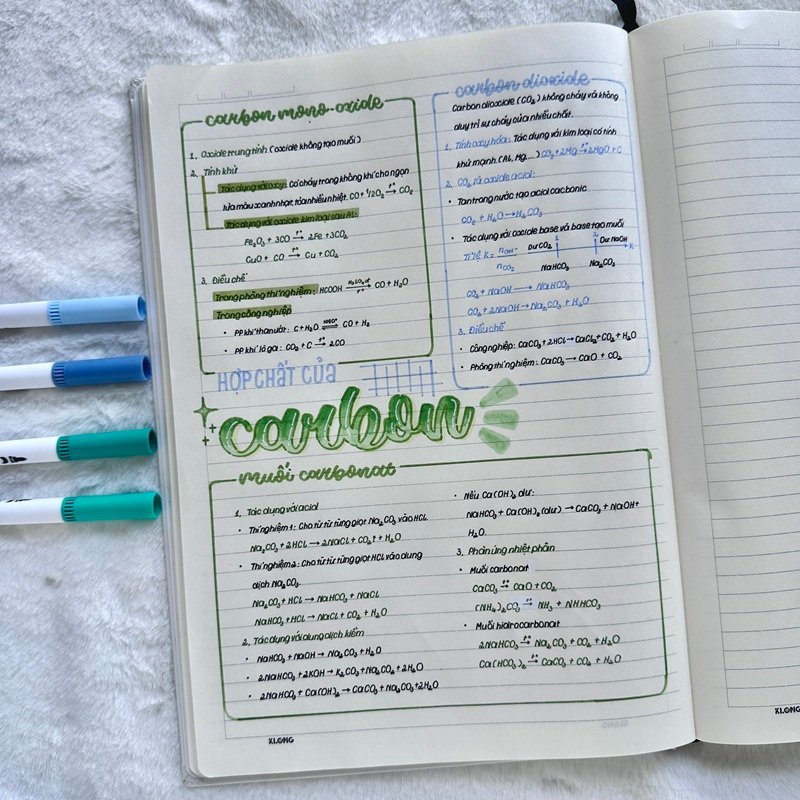 carbon mono-oxide
1. Oxide trung tính (oxide không tạo muối)
2. Tính khử
Tác dụng với oxy: CO cháy trong không khí cho ngọn
lửa màu xanh nhạt, tỏa nhiều nhiệt. CO + 1/2O₂ →t° CO₂
Tác dụng với oxide kim loại sau Al:
Fe₂O₃ + 3CO →t° 2Fe + 3CO₂
CuO + CO →t° Cu + CO₂
3. Điều chế
Trong phòng thí nghiệm: HCOOH →H₂SO₄đ t° CO + H₂O
Trong công nghiệp
• PP khí than ướt: C + H₂O ⇌1050° CO + H₂
• PP khí lò gas: CO₂ + C →t° 2CO
carbon dioxide
Carbon dioxide (CO₂) không cháy và không
duy trì sự cháy của nhiều chất.
1. Tính oxy hóa: Tác dụng với kim loại có tính
khử mạnh (Al, Mg,...) CO₂ + 2Mg →t° 2MgO + C
2. CO₂ là oxide acid:
• Tan trong nước tạo acid cacbonic
CO₂ + H₂O → H₂CO₃
• Tác dụng với oxide base và base tạo muối
Tỉ lệ K = nOH⁻ Dư CO₂ 1 2 Dư NaOH K
nCO₂ NaHCO₃ Na₂CO₃
CO₂ + NaOH → NaHCO₃
CO₂ + 2NaOH → Na₂CO₃ + H₂O
3. Điều chế
• Công nghiệp: CaCO₃ + 2HCl → CaCl₂ + CO₂ + H₂O
• Phòng thí nghiệm: CaCO₃ → CaO + CO₂
HỢP CHẤT CỦA
carbon
muối carbonat
1. Tác dụng với acid
• Thí nghiệm 1: Cho từ từ từng giọt Na₂CO₃ vào HCl.
Na₂CO₃ + 2HCl → 2NaCl + CO₂↑ + H₂O
• Thí nghiệm 2: Cho từ từ từng giọt HCl vào dung
dịch Na₂CO₃.
Na₂CO₃ + HCl → NaHCO₃ + NaCl
NaHCO₃ + HCl → NaCl + CO₂ + H₂O
2. Tác dụng với dung dịch kiềm
• NaHCO₃ + NaOH → Na₂CO₃ + H₂O
• 2NaHCO₃ + 2KOH → K₂CO₃ + Na₂CO₃ + 2H₂O
• 2NaHCO₃ + Ca(OH)₂ → CaCO₃ + Na₂CO₃ + 2H₂O
• Nếu Ca(OH)₂ dư:
NaHCO₃ + Ca(OH)₂ (dư) → CaCO₃ + NaOH +
H₂O.
3. Phản ứng nhiệt phân
• Muối carbonat
CaCO₃ →t° CaO + CO₂
(NH₄)₂CO₃ →t° NH₃ + NHHCO₃
• Muối hidrocarbonat
2NaHCO₃ →t° Na₂CO₃ + CO₂ + H₂O
Ca(HCO₃)₂ →t° CaCO₃ + CO₂ + H₂O
KLONG
KLONG